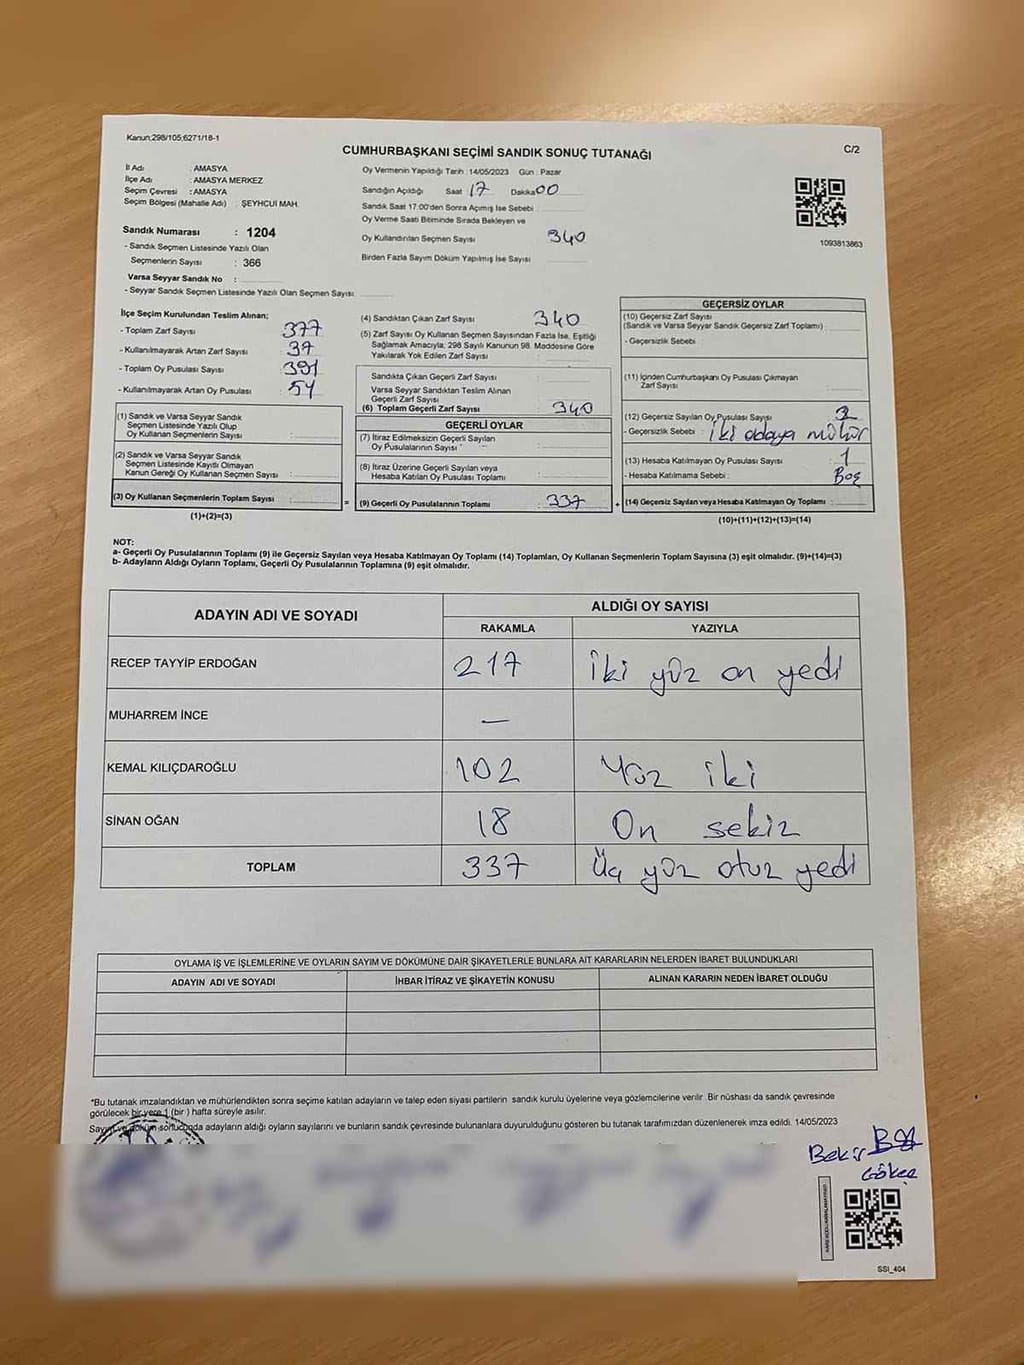 Kanun:298/105;6271/18-1
CUMHURBAŞKANI SEÇİMİ SANDIK SONUÇ TUTANAĞI
C/2
İl Adı : AMASYA
İlçe Adı : AMASYA MERKEZ
Seçim Çevresi : AMASYA
Seçim Bölgesi (Mahalle Adı) : ŞEYHCUİ MAH.
Sandık Numarası : 1204
- Sandık Seçmen Listesinde Yazılı Olan
Seçmenlerin Sayısı : 366
Varsa Seyyar Sandık No :
- Seyyar Sandık Seçmen Listesinde Yazılı Olan Seçmen Sayısı
Oy Vermenin Yapıldığı Tarih : 14/05/2023 Gün : Pazar
Sandığın Açıldığı Saat 17 Dakika 00
Sandık Saat 17:00'den Sonra Açımış İse Sebebi :
Oy Verme Saati Bitiminde Sırada Bekleyen ve
Oy Kullandırılan Seçmen Sayısı 340
Birden Fazla Sayım Döküm Yapılmış İse Sayısı
1093813863
İlçe Seçim Kurulundan Teslim Alınan;
- Toplam Zarf Sayısı 377
- Kullanılmayarak Artan Zarf Sayısı : 37
- Toplam Oy Pusulası Sayısı : 391
- Kullanılmayarak Artan Oy Pusulası : 54
(1) Sandık ve Varsa Seyyar Sandık
Seçmen Listesinde Yazılı Olup
Oy Kullanan Seçmenlerin Sayısı :
(2) Sandık ve Varsa Seyyar Sandık
Seçmen Listesinde Kayıtlı Olmayan
Kanun Gereği Oy Kullanan Seçmen Sayısı :
(3) Oy Kullanan Seçmenlerin Toplam Sayısı :
(1)+(2)=(3)
(4) Sandıktan Çıkan Zarf Sayısı : 340
(5) Zarf Sayısı Oy Kullanan Seçmen Sayısından Fazla İse, Eşitliği
Sağlamak Amacıyla; 298 Sayılı Kanunun 98. Maddesine Göre
Yakılarak Yok Edilen Zarf Sayısı :
Sandıkta Çıkan Geçerli Zarf Sayısı :
Varsa Seyyar Sandıktan Teslim Alınan
Geçerli Zarf Sayısı :
(6) Toplam Geçerli Zarf Sayısı : 340
GEÇERLİ OYLAR
(7) İtiraz Edilmeksizin Geçerli Sayılan
Oy Pusulalarının Sayısı :
(8) İtiraz Üzerine Geçerli Sayılan veya
Hesaba Katılan Oy Pusulası Toplamı :
= (9) Geçerli Oy Pusulalarının Toplamı : 337 +
GEÇERSİZ OYLAR
(10) Geçersiz Zarf Sayısı
(Sandık ve Varsa Seyyar Sandık Geçersiz Zarf Toplamı) :
- Geçersizlik Sebebi :
(11) İçinden Cumhurbaşkanı Oy Pusulası Çıkmayan
Zarf Sayısı :
(12) Geçersiz Sayılan Oy Pusulası Sayısı : 2
- Geçersizlik Sebebi : iki adaya mühür
(13) Hesaba Katılmayan Oy Pusulası Sayısı : 1
- Hesaba Katılmama Sebebi : Boş
(14) Geçersiz Sayılan veya Hesaba Katılmayan Oy Toplamı :
(10)+(11)+(12)+(13)=(14)
NOT:
a- Geçerli Oy Pusulalarının Toplamı (9) ile Geçersiz Sayılan veya Hesaba Katılmayan Oy Toplamı (14) Toplamları, Oy Kullanan Seçmenlerin Toplam Sayısına (3) eşit olmalıdır. (9)+(14)=(3)
b- Adayların Aldığı Oyların Toplamı, Geçerli Oy Pusulalarının Toplamına (9) eşit olmalıdır.
ADAYIN ADI VE SOYADI
ALDIĞI OY SAYISI
RAKAMLA YAZIYLA
RECEP TAYYİP ERDOĞAN 217 iki yüz on yedi
MUHARREM İNCE —
KEMAL KILIÇDAROĞLU 102 Yüz iki
SİNAN OĞAN 18 On sekiz
TOPLAM 337 Üç yüz otuz yedi
OYLAMA İŞ VE İŞLEMLERİNE VE OYLARIN SAYIM VE DÖKÜMÜNE DAİR ŞİKAYETLERLE BUNLARA AİT KARARLARIN NELERDEN İBARET BULUNDUKLARI
ADAYIN ADI VE SOYADI İHBAR İTİRAZ VE ŞİKAYETİN KONUSU ALINAN KARARIN NEDEN İBARET OLDUĞU
*Bu tutanak imzalandıktan ve mühürlendikten sonra seçime katılan adayların ve talep eden siyasi partilerin sandık kurulu üyelerine veya gözlemcilerine verilir. Bir nüshası da sandık çevresinde
görülecek bir yere 1 (bir ) hafta süreyle asılır.
Sayım ve döküm sonucunda adayların aldığı oyların sayılarını ve bunların sandık çevresinde bulunanlara duyurulduğunu gösteren bu tutanak tarafımızdan düzenlenerek imza edildi. 14/05/2023
Bekir
Gökçe
SSI_404